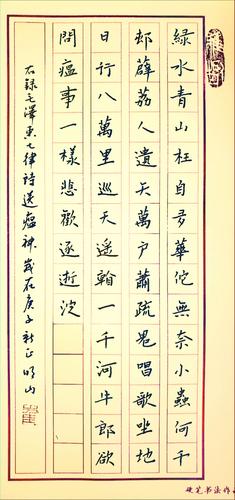 綠水青山枉自多華佗無奈小蟲何千
邨薜荔人遺矢萬户蕭疏鬼唱歌坐地
日行八萬里巡天遥看一千河牛郎欲
問瘟事一樣悲歡逐逝波
右録毛澤東七律詩送瘟神歲在庚子新正明山
硬笔书法作